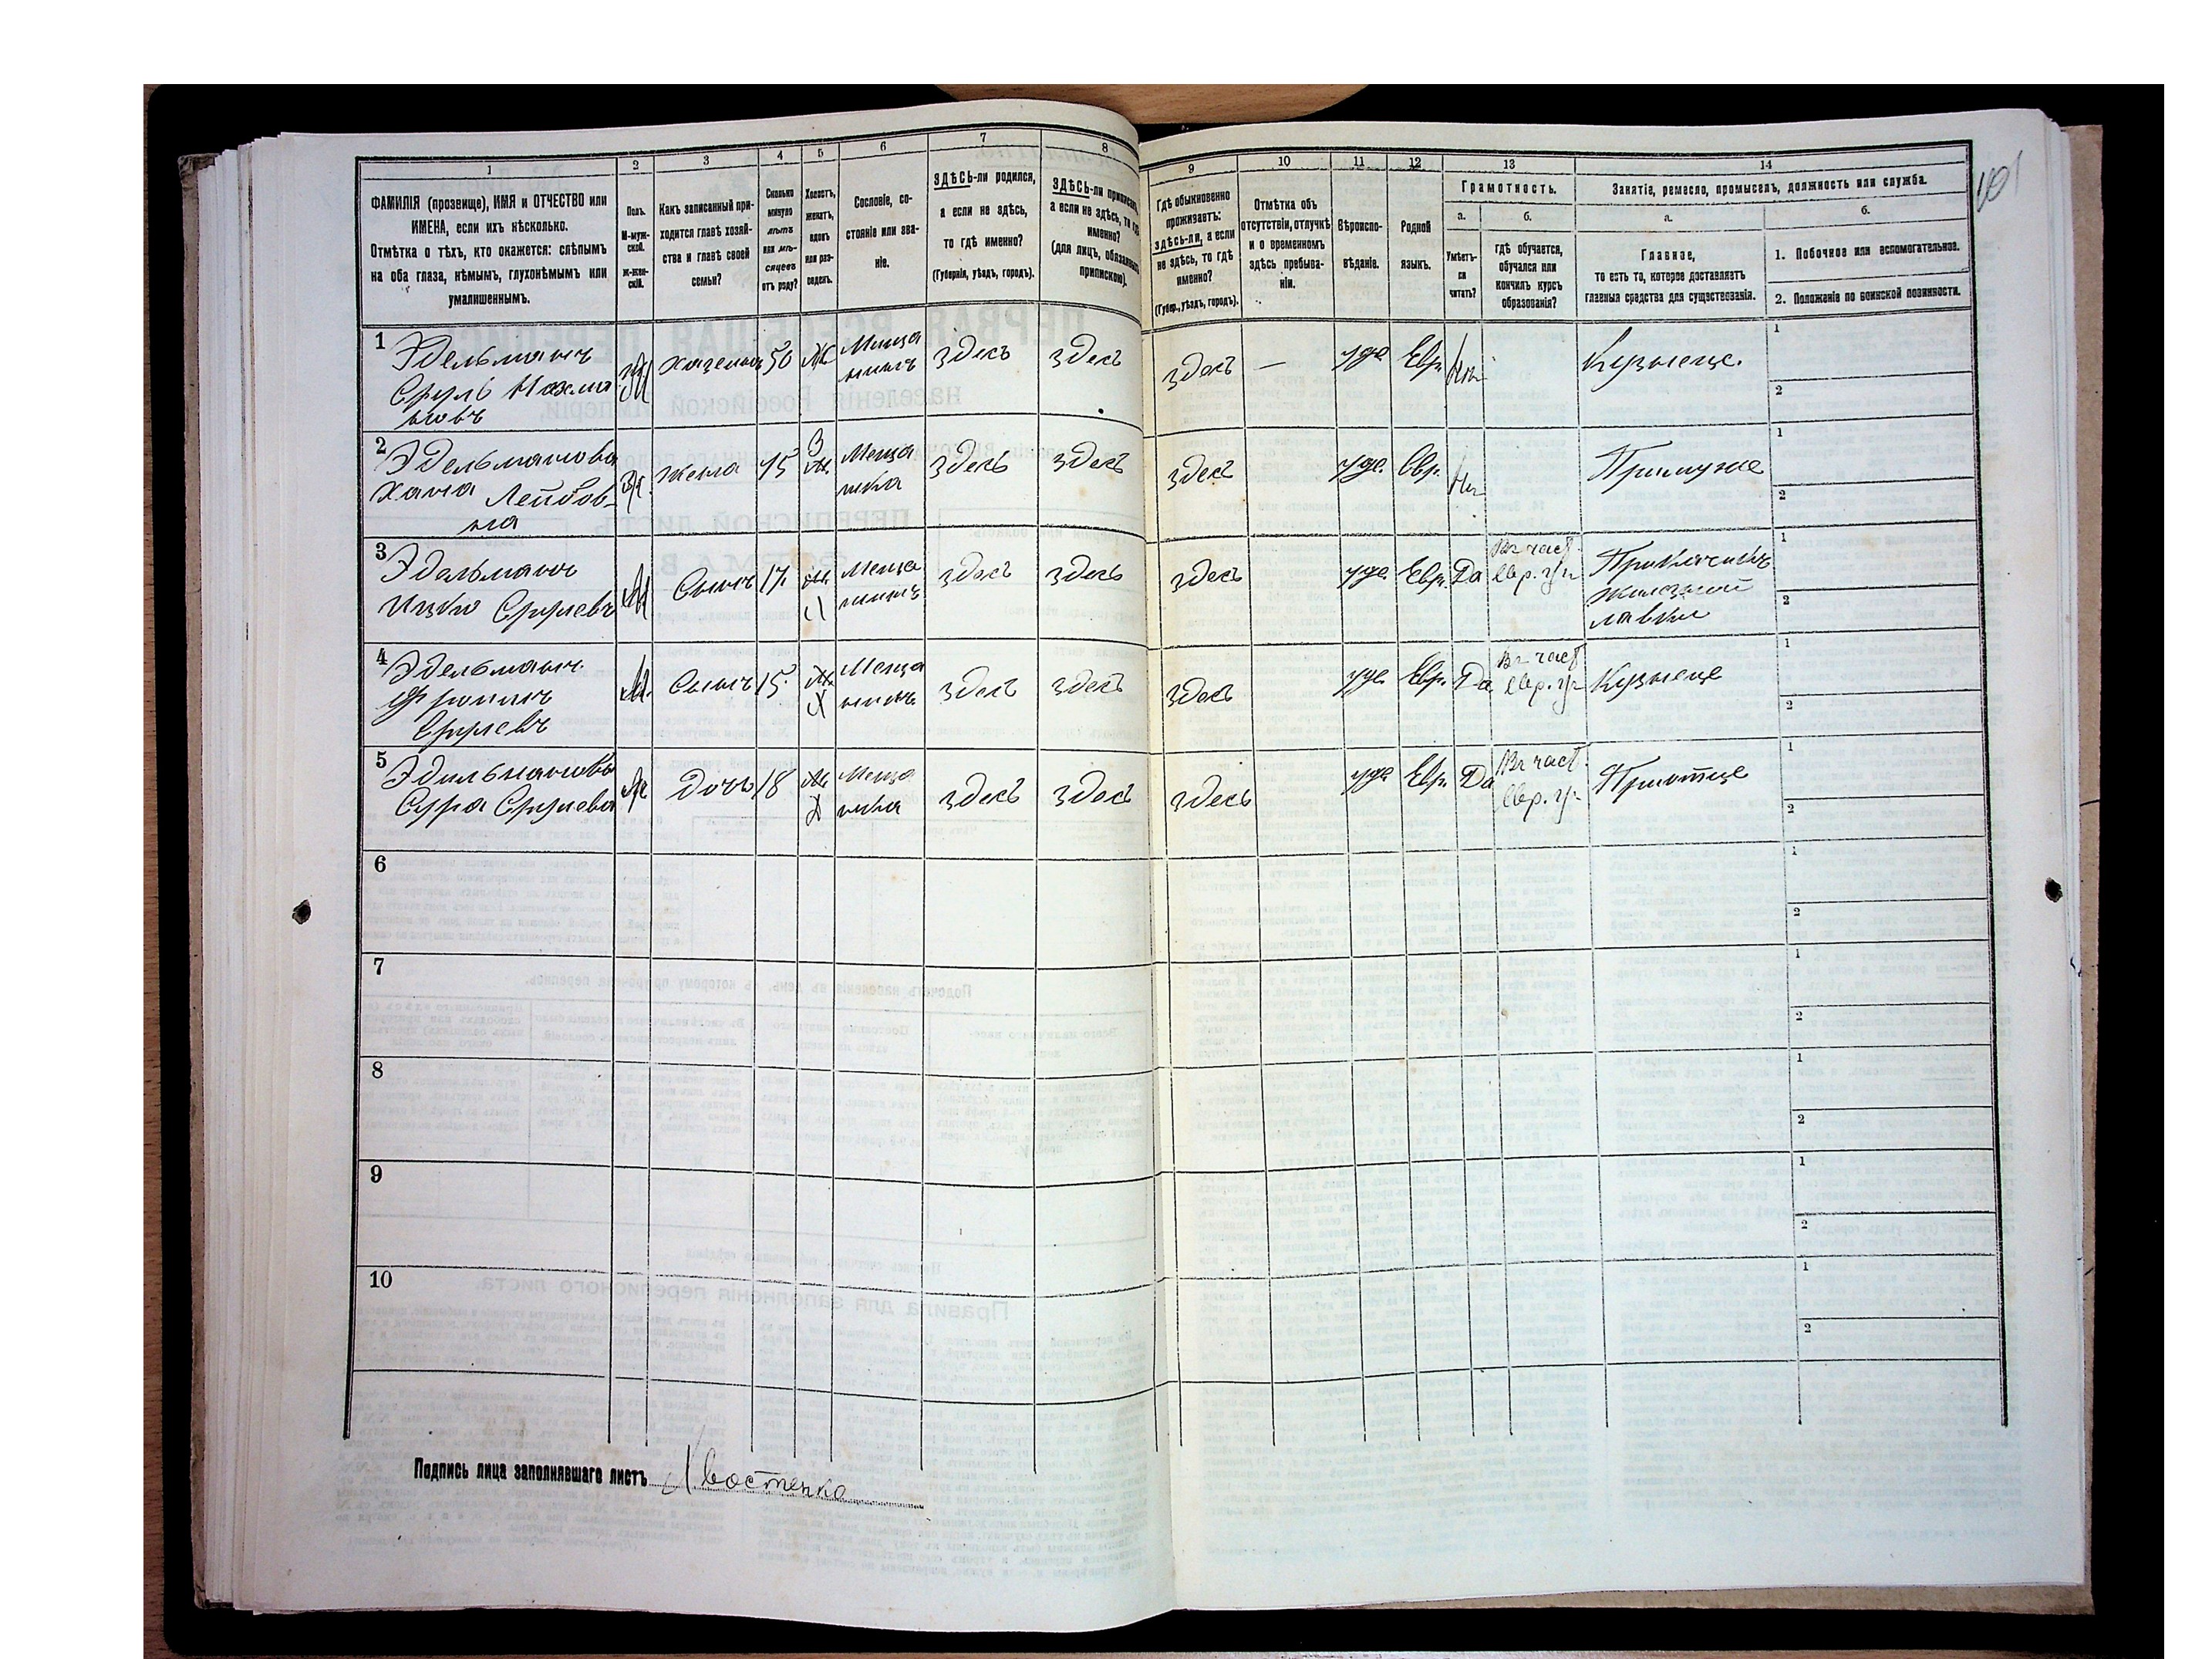 1 2 3 4 5 6 7 8 9 10 11 12 13 14
ФАМИЛІЯ (прозвище), ИМЯ и ОТЧЕСТВО или
ИМЕНА, если ихъ нѣсколько.
Отмѣтка о тѣхъ, кто окажется: слѣпымъ
на оба глаза, нѣмымъ, глухонѣмымъ или
умалишеннымъ.
Полъ.
М-муж-
ской.
ж-жен-
скій.
Какъ записанный при-
ходится главѣ хозяй-
ства и главѣ своей
семьи?
Сколько
минуло
лѣтъ
или мѣ-
сяцевъ
отъ роду?
Холостъ,
женатъ,
вдовъ
или раз-
веденъ.
Сословіе, со-
стояніе или зва-
ніе.
ЗДѢСЬ-ли родился,
а если не здѣсь,
то гдѣ именно?
(Губернія, уѣздъ, городъ).
ЗДѢСЬ-ли приписанъ,
а если не здѣсь, то гдѣ
именно?
(для лицъ, обязанныхъ
припискою).
Гдѣ обыкновенно
проживаетъ:
здѣсь-ли, а если
не здѣсь, то гдѣ
именно?
(Губер., уѣздъ, городъ).
Отмѣтка объ
отсутствіи, отлучкѣ
и о временномъ
здѣсь пребыва-
ніи.
Вѣроиспо-
вѣданіе.
Родной
языкъ.
Грамотность.
а.
Умѣетъ-
ли
читать?
б.
гдѣ обучается,
обучался или
кончилъ курсъ
образованія?
Занятіе, ремесло, промыселъ, должность или служба.
а.
Главное,
то есть то, которое доставляетъ
главныя средства для существованія.
б.
1. Побочное или вспомогательное.
2. Положеніе по воинской повинности.
1 Эдельманъ
Сруль Нахма
новъ
М Хазеинъ 50 Ж Меща
нинъ здесь здесь здесь — іуде Евр. Кузнецъ.
1
2
2 Эдельманова
Хана Лейбов-
на
ж. жена 45 З Меща
нка здесь здесь здесь іуде. Евр. Примуже
1
2
3 Эдельманъ
Ицко Срулевъ
М Сынъ 17 Меща
нинъ здесь здесь здесь іуде Евр. Да Въ част.
евр. уч. Прикасчикъ
железной
лавки
1
2
4 Эдельманъ
Фроимъ
Срулевъ
М. Сынъ 15. Х Меща
нинъ здесь здесь здесь іуде Евр. Да Въ част
евр. уч. Кузнеце
1
2
5 Эдельманова
Сура Срулева
ж Дочь 18 Х Меща
нка здесь здесь здесь іуде Евр. Да Въ част.
евр. уч. Приотце
1
2
6
1
2
7
1
2
8
1
2
9
1
2
10
1
2
Подпись лица заполнявшаго листъ Хвостенко